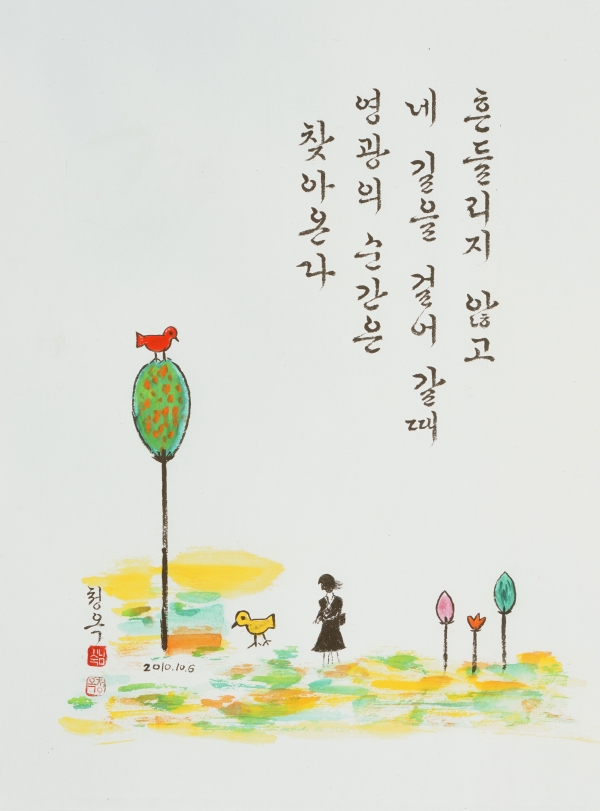 흔들리지 않고
네 길을 걸어 갈때
영광의 순간은
찾아온다
청옥
2010.10.6